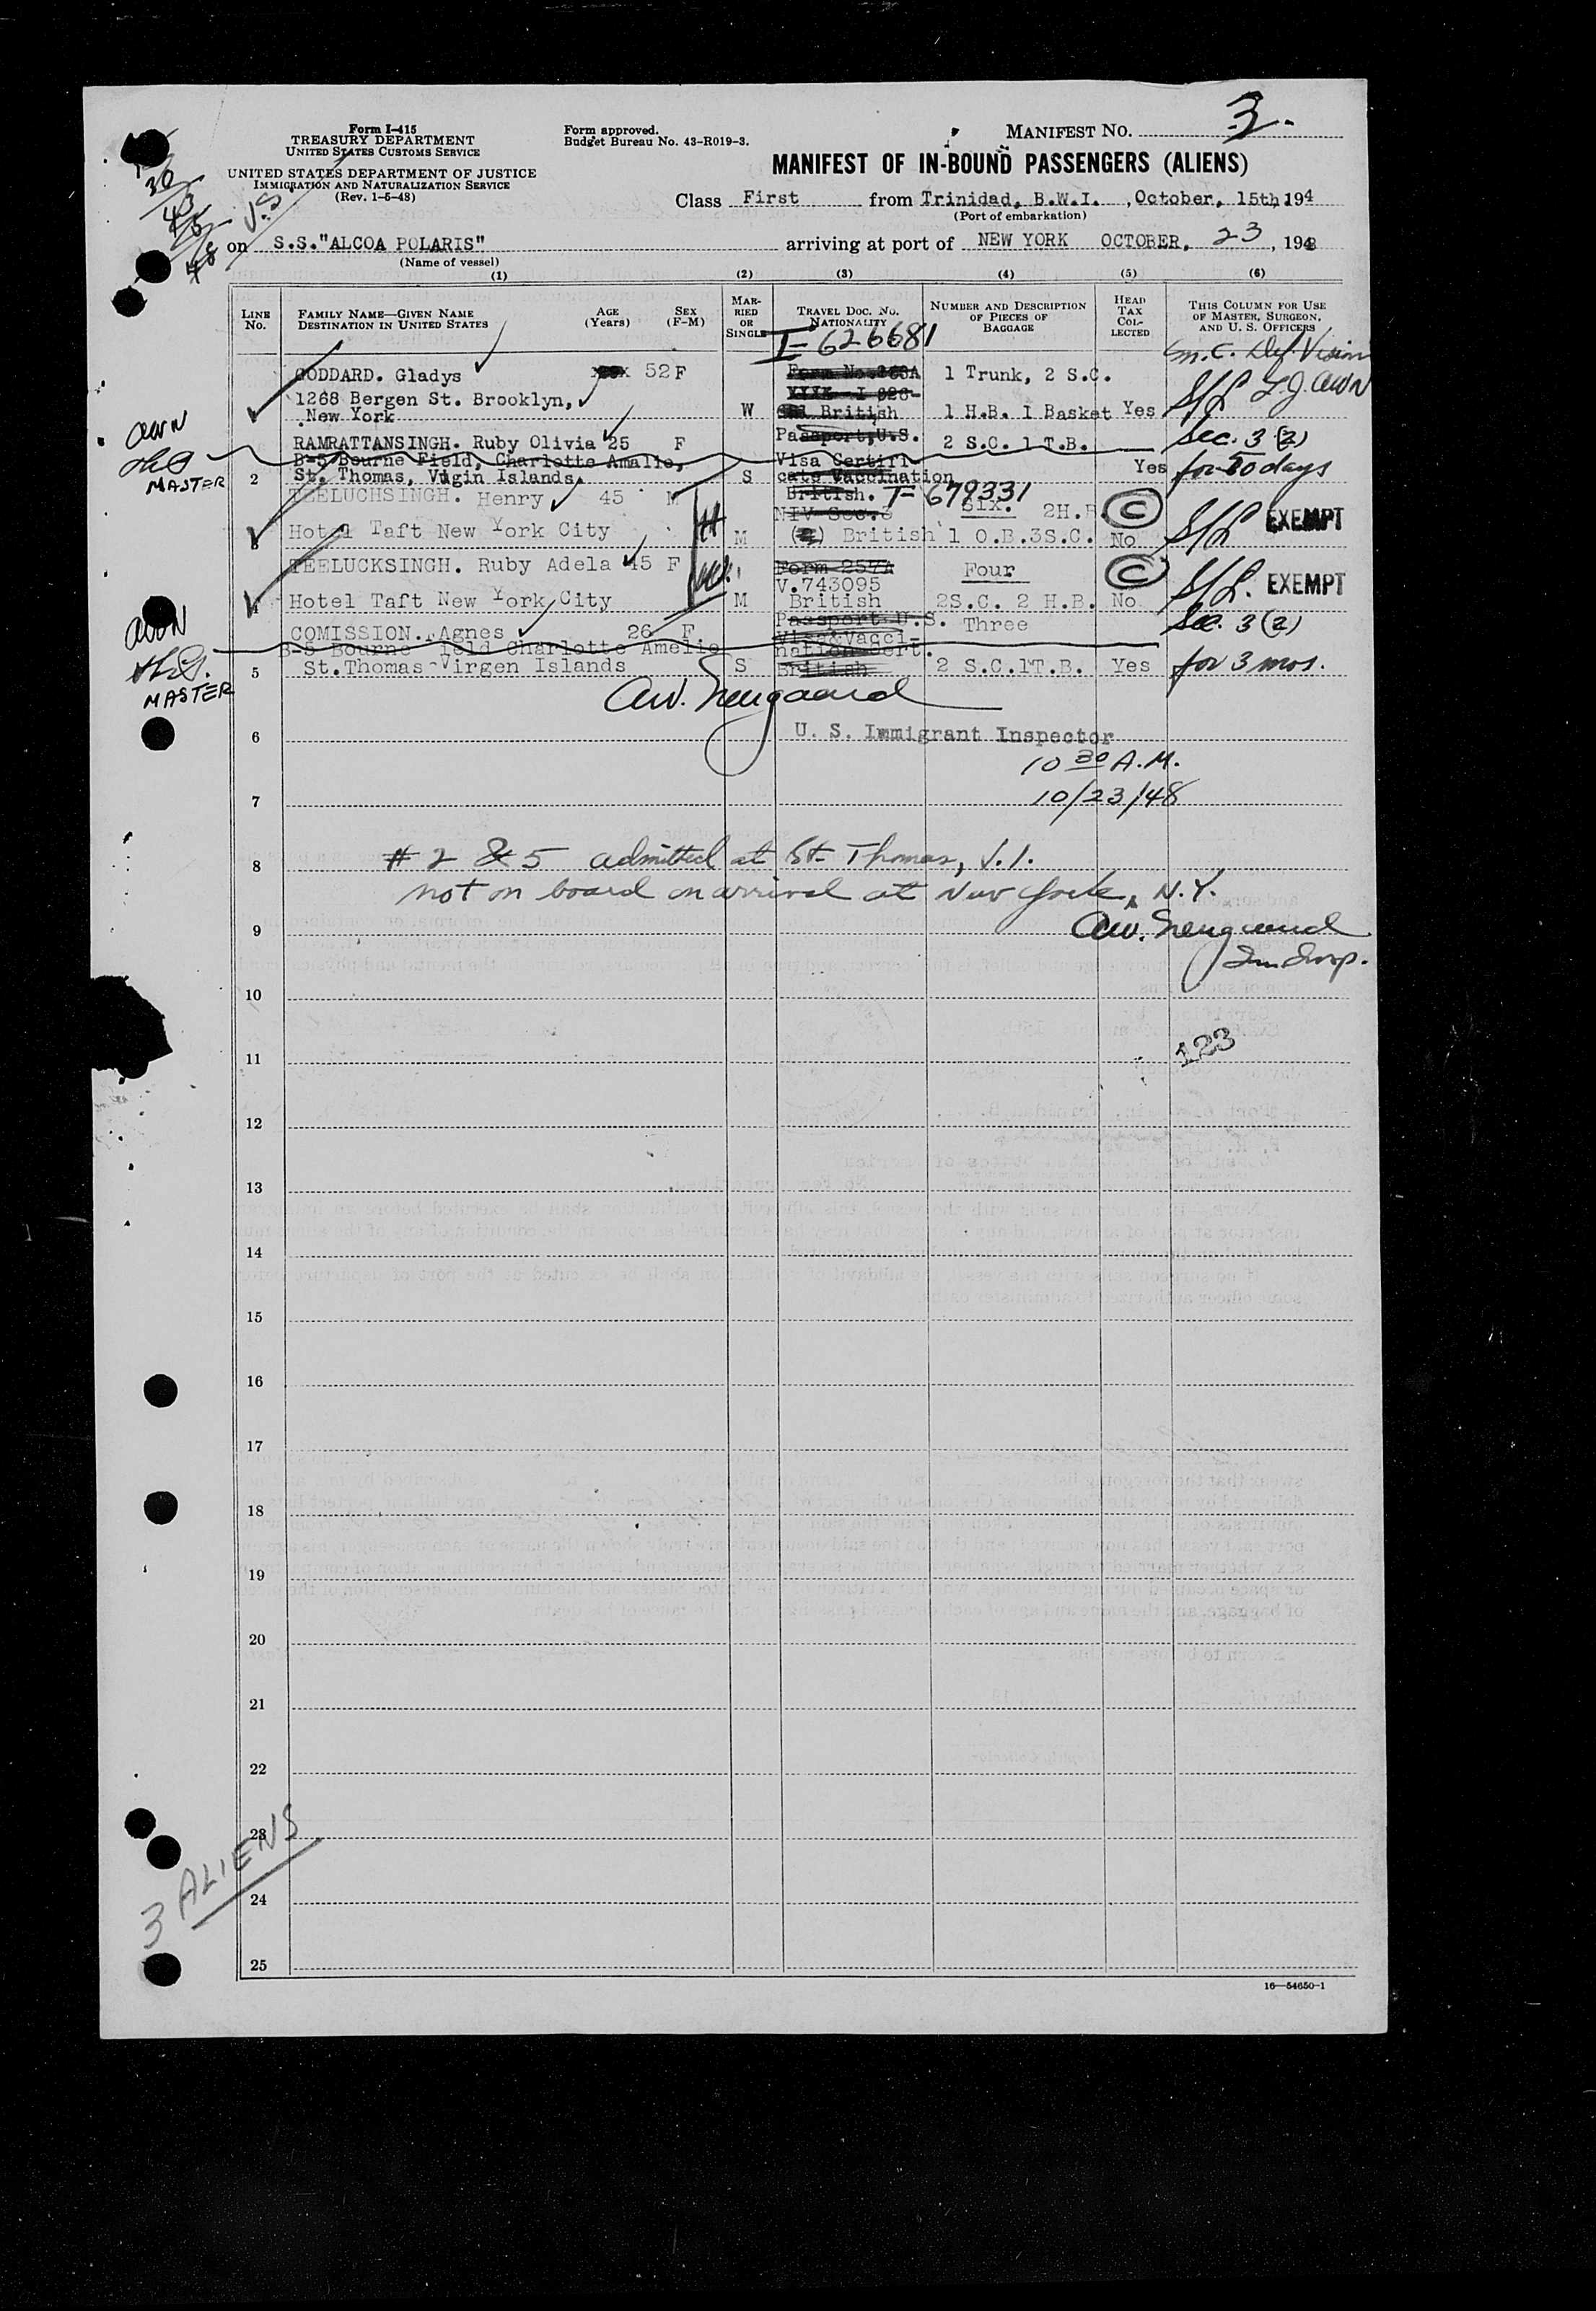 Form I-415
TREASURY DEPARTMENT
UNITED STATES CUSTOMS SERVICE
UNITED STATES DEPARTMENT OF JUSTICE
IMMIGRATION AND NATURALIZATION SERVICE
(Rev. 1-5-48)
Form approved.
Budget Bureau No. 43-R019-3.
MANIFEST NO. 3.
MANIFEST OF IN-BOUND PASSENGERS (ALIENS)
Class First from Trinidad, B.W.I. , October, 15th, 194
(Port of embarkation)
on S.S."ALCOA POLARIS" arriving at port of NEW YORK OCTOBER, 23, 1948
(Name of vessel)
(1) (2) (3) (4) (5) (6)
LINE No.
FAMILY NAME—GIVEN NAME
DESTINATION IN UNITED STATES
AGE (Years)
SEX (F-M)
MARRIED OR SINGLE
TRAVEL DOC. NO. NATIONALITY
NUMBER AND DESCRIPTION OF PIECES OF BAGGAGE
HEAD TAX COLLECTED
THIS COLUMN FOR USE OF MASTER, SURGEON, AND U. S. OFFICERS
I-626681
m.c. Def. Vision
GODDARD. Gladys 52 F 1 Trunk, 2 S.C.
1268 Bergen St. Brooklyn,
New York W British 1 H.B. I Basket Yes
RAMRATTANSINGH. Ruby Olivia 25 F Passport,U.S. 2 S.C. 1 T.B. Sec. 3 (2)
B-5 Bourne Field, Charlotte Amalie, Visa Certifi-
2 St. Thomas, Vigin Islands. S cate Vaccination Yes for 50 days
British. T-679331
TEELUCHSINGH. Henry 45 M NIV Sec.3 Six. 2H.B. C
3 Hotel Taft New York City M (2) British 1 O.B.3S.C. No EXEMPT
TEELUCKSINGH. Ruby Adela 45 F Form 257A Four C
V.743095
4 Hotel Taft New York City M British 2S.C. 2 H.B. No EXEMPT
COMISSION. Agnes 26 F Passport U.S. Three Sec. 3 (2)
B-5 Bourne Field Charlotte Amelie Visa&Vacci-
nation Cert.
5 St.Thomas Virgen Islands S British 2 S.C.1T.B. Yes for 3 mos.
AWN
MASTER
AWN
MASTER
6 U. S. Immigrant Inspector
10 30 A.M.
7 10/23/48
8 # 2 & 5 admitted at St. Thomas, V.I.
not on board on arrival at New York, N.Y.
9
10
11 123
12
13
14
15
16
17
18
19
20
21
22
23
24
25
3 ALIENS
16—54650-1